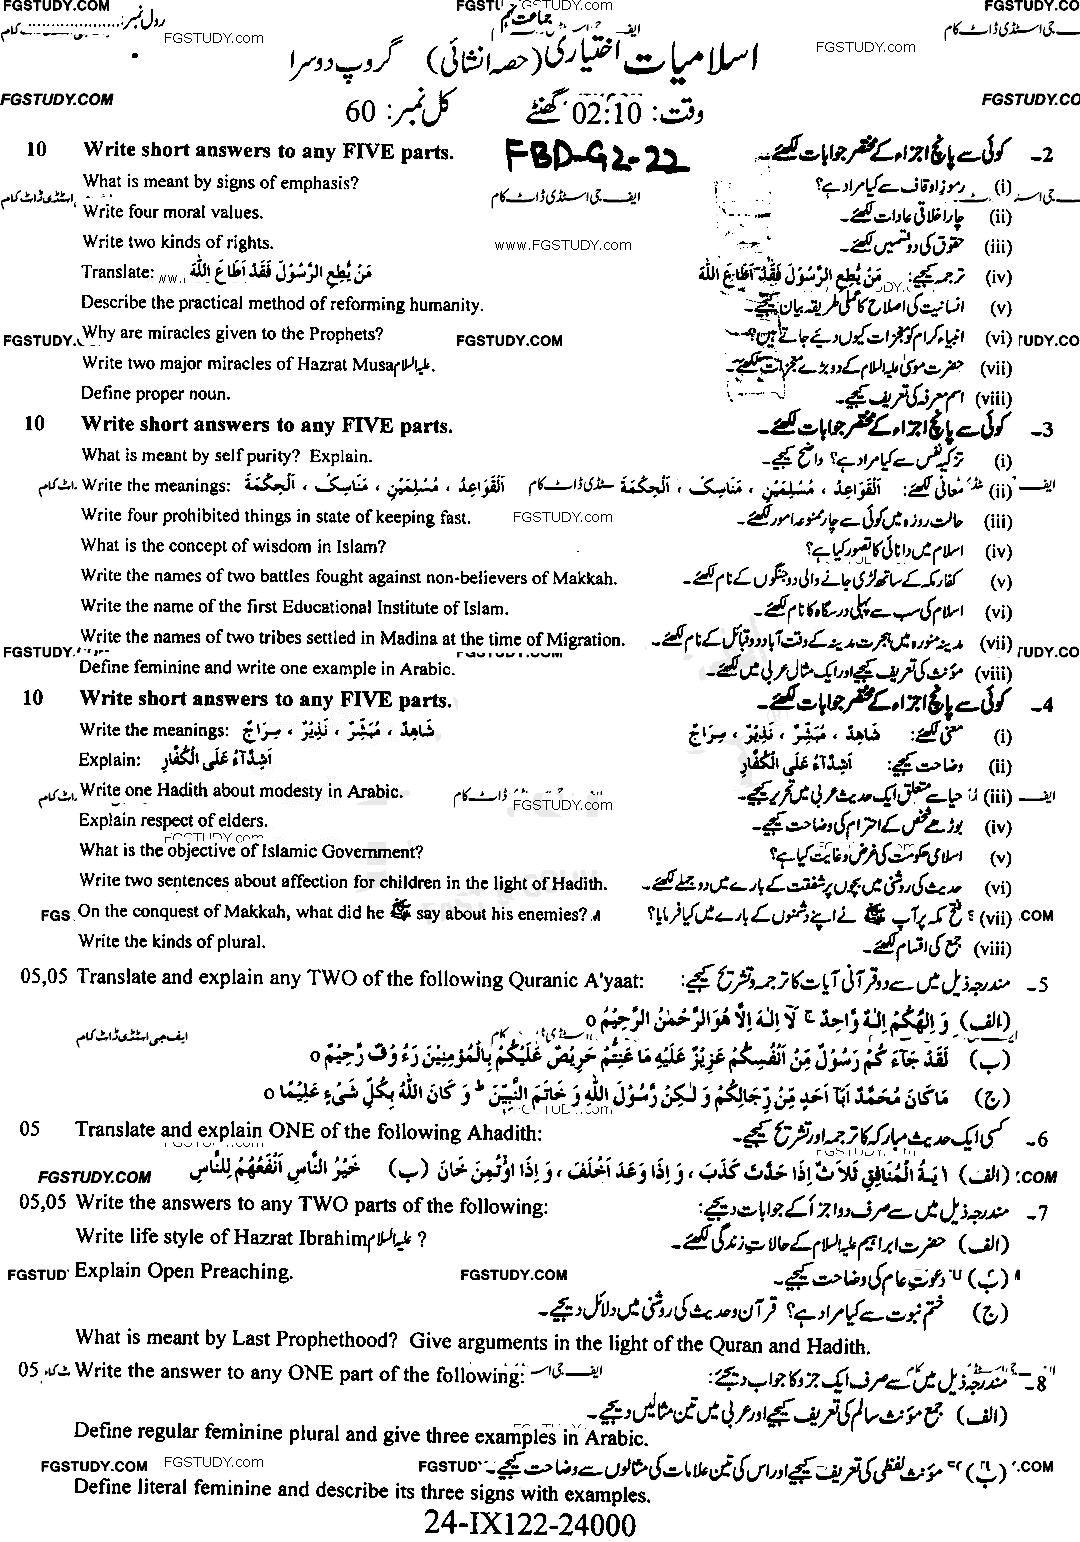 FGSTUDY.COM FGSTUDY.COM
رول نمبر: جماعت نہم
FGSTUDY.com FGSTUDY.com
اسلامیات اختیاری (حصہ انشائی) گروپ دوسرا
FGSTUDY.COM
وقت: 02:10 گھنٹے کل نمبر: 60
10 Write short answers to any FIVE parts. FBD-G2-22 2- کوئی سے پانچ اجزاء کے مختصر جوابات لکھئے۔
What is meant by signs of emphasis? (i) رموز اوقاف سے کیا مراد ہے؟
Write four moral values. (ii) چار اخلاقی عادات لکھئے۔
Write two kinds of rights. www.FGSTUDY.com (iii) حقوق کی دو قسمیں لکھئے۔
Translate: مَنْ يُطِعِ الرَّسُوْلَ فَقَدْ اَطَاعَ اللّٰهَ (iv) ترجمہ کیجیے: مَنْ يُطِعِ الرَّسُوْلَ فَقَدْ اَطَاعَ اللّٰهَ
Describe the practical method of reforming humanity. (v) انسانیت کی اصلاح کا عملی طریقہ بیان کیجیے۔
Why are miracles given to the Prophets? (vi) انبیاء کرام کو معجزات کیوں دیے جاتے ہیں؟
FGSTUDY.COM
Write two major miracles of Hazrat Musa علیہ السلام. (vii) حضرت موسیٰ علیہ السلام کے دو بڑے معجزات لکھئے۔
Define proper noun. (viii) اسم معرفہ کی تعریف کیجیے۔
10 Write short answers to any FIVE parts. 3- کوئی سے پانچ اجزاء کے مختصر جوابات لکھئے۔
What is meant by self purity? Explain. (i) تزکیہ نفس سے کیا مراد ہے؟ واضح کیجیے۔
Write the meanings: اَلْقَوَاعِدُ ، مُسْلِمَيْنِ ، مَنَاسِكَ ، اَلْحِكْمَةَ (ii) معانی لکھئے: اَلْقَوَاعِدُ ، مُسْلِمَيْنِ ، مَنَاسِكَ ، اَلْحِكْمَةَ
Write four prohibited things in state of keeping fast. FGSTUDY.com (iii) حالت روزہ میں کوئی سے چار ممنوعہ امور لکھئے۔
What is the concept of wisdom in Islam? (iv) اسلام میں دانائی کا تصور کیا ہے؟
Write the names of two battles fought against non-believers of Makkah. (v) کفار مکہ کے ساتھ لڑی جانے والی دو جنگوں کے نام لکھئے۔
Write the name of the first Educational Institute of Islam. (vi) اسلام کی سب سے پہلی درسگاہ کا نام لکھئے۔
Write the names of two tribes settled in Madina at the time of Migration. (vii) مدینہ منورہ میں ہجرت مدینہ کے وقت آباد دو قبائل کے نام لکھئے۔
Define feminine and write one example in Arabic. (viii) مؤنث کی تعریف کیجیے اور ایک مثال عربی میں لکھئے۔
10 Write short answers to any FIVE parts. 4- کوئی سے پانچ اجزاء کے مختصر جوابات لکھئے۔
Write the meanings: شَاهِدٌ ، مُبَشِّرٌ ، نَذِيْرٌ ، سِرَاجٌ (i) معنی لکھئے: شَاهِدٌ ، مُبَشِّرٌ ، نَذِيْرٌ ، سِرَاجٌ
Explain: اَشِدَّآءُ عَلَى الْكُفَّارِ (ii) وضاحت کیجیے: اَشِدَّآءُ عَلَى الْكُفَّارِ
Write one Hadith about modesty in Arabic. (iii) حیا سے متعلق ایک حدیث عربی میں تحریر کیجیے۔
FGSTUDY.com
Explain respect of elders. (iv) بوڑھے شخص کے احترام کی وضاحت کیجیے۔
What is the objective of Islamic Government? (v) اسلامی حکومت کی غرض و غایت کیا ہے؟
Write two sentences about affection for children in the light of Hadith. (vi) حدیث کی روشنی میں بچوں پر شفقت کے بارے میں دو جملے لکھئے۔
On the conquest of Makkah, what did he ﷺ say about his enemies? (vii) فتح مکہ پر آپ ﷺ نے اپنے دشمنوں کے بارے میں کیا فرمایا؟
Write the kinds of plural. (viii) جمع کی اقسام لکھئے۔
05,05 Translate and explain any TWO of the following Quranic A'yaat: 5- مندرجہ ذیل میں سے دو قرآنی آیات کا ترجمہ و تشریح کیجیے:
(الف) وَ اِلٰهُكُمْ اِلٰهٌ وَّاحِدٌ ۚ لَآ اِلٰهَ اِلَّا هُوَ الرَّحْمٰنُ الرَّحِيْمُ o
(ب) لَقَدْ جَآءَ كُمْ رَسُوْلٌ مِّنْ اَنْفُسِكُمْ عَزِيْزٌ عَلَيْهِ مَا عَنِتُّمْ حَرِيْصٌ عَلَيْكُمْ بِالْمُؤْمِنِيْنَ رَءُوْفٌ رَّحِيْمٌ o
(ج) مَا كَانَ مُحَمَّدٌ اَبَآ اَحَدٍ مِّنْ رِّجَالِكُمْ وَ لٰكِنْ رَّسُوْلَ اللّٰهِ وَ خَاتَمَ النَّبِيّٖنَ ؕ وَ كَانَ اللّٰهُ بِكُلِّ شَيْءٍ عَلِيْمًا o
05 Translate and explain ONE of the following Ahadith: 6- کسی ایک حدیث مبارکہ کا ترجمہ اور تشریح کیجیے۔
FGSTUDY.COM (الف) ايَةُ الْمُنَافِقِ ثَلَاثٌ اِذَا حَدَّثَ كَذَبَ ، وَ اِذَا وَعَدَ اَخْلَفَ ، وَ اِذَا اؤْتُمِنَ خَانَ (ب) خَيْرُ النَّاسِ اَنْفَعُهُمْ لِلنَّاسِ
05,05 Write the answers to any TWO parts of the following: 7- مندرجہ ذیل میں سے صرف دو اجزا کے جوابات دیجیے:
Write life style of Hazrat Ibrahim علیہ السلام ? (الف) حضرت ابراہیم علیہ السلام کے حالات زندگی لکھئے۔
Explain Open Preaching. FGSTUDY.COM (ب) دعوت عام کی وضاحت کیجیے۔
(ج) ختم نبوت سے کیا مراد ہے؟ قرآن و حدیث کی روشنی میں دلائل دیجیے۔
What is meant by Last Prophethood? Give arguments in the light of the Quran and Hadith.
05 Write the answer to any ONE part of the following: 8- مندرجہ ذیل میں سے صرف ایک جزو کا جواب دیجیے:
(الف) جمع مؤنث سالم کی تعریف کیجیے اور عربی میں تین مثالیں دیجیے۔
Define regular feminine plural and give three examples in Arabic.
FGSTUDY.COM FGSTUDY.com (ب) مؤنث لفظی کی تعریف کیجیے اور اس کی تین علامات کی مثالوں سے وضاحت کیجیے۔
Define literal feminine and describe its three signs with examples.
24-IX122-24000